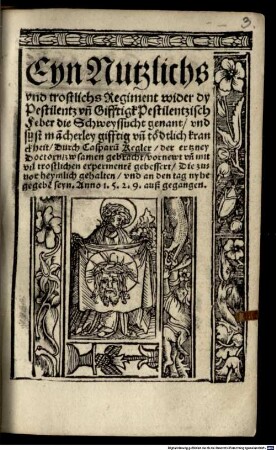 3.
Eyn Nutzlichs
vnd trostlichs Regiment wider dy
Pestilentz vñ Gifftigk Pestilentzisch
Feber die Schweyssucht genant / vnd
sust mãcherley gifftig vñ tödtlich kran
ckheit / Durch Casparũ Kegler / der ertzney
Doctorn zw samen gebracht / vornewt vñ mit
vil trostlichen experimentẽ gebessert / Die zu
vor heymlich gehalten / vnd an den tag ny he
gegebẽ seyn. Anno 1. 5. 2. 9. auß gegangen.